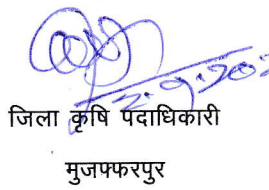 जिला कृषि पदाधिकारी
मुजफ्फरपुर